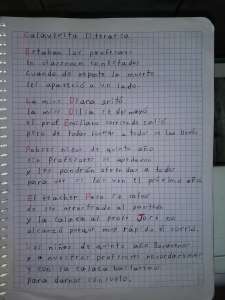 Calaverita Literaria
Estaban los profesores
en classroom conectados
cuando de repente la muerte
les apareció a un lado
La miss Diana gritó
la miss Lilia se desmayó
el prof Emiliano corriendo salió
pero de todos modos a todos se los llevó
Pobres niños de quinto año
sin profesores se quedaron
y les pondrán atender a todos
para ver si los ven el próximo año
El teacher Paco se salvó
de ser arrastrado al panteón
y la calaca al profe José no
alcanzó porque más rápido el corrió.
Los niños de quinto año lloraremos
y a nuestros profesores recordaremos
y con la calaca bailaremos
para darnos consuelo.